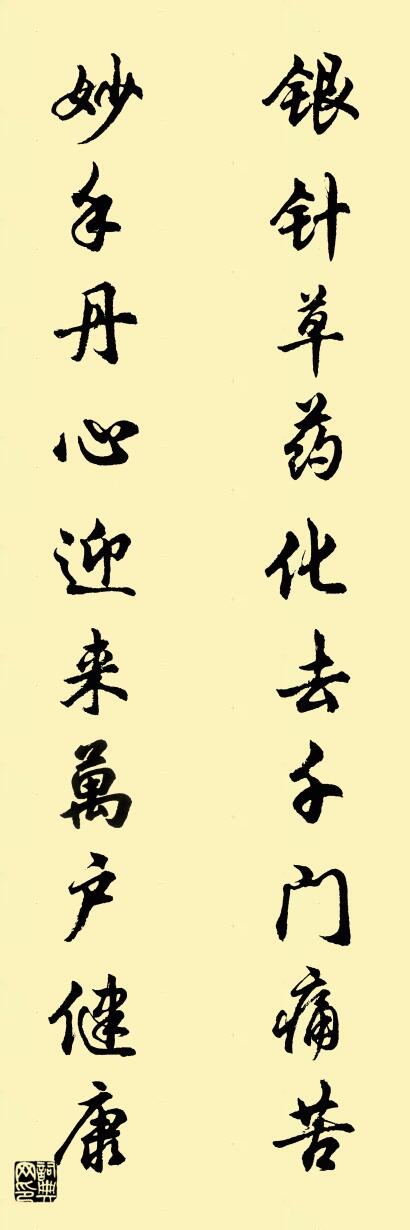 银针草药化去千门痛苦
妙手丹心迎来萬户健康
詞典网印